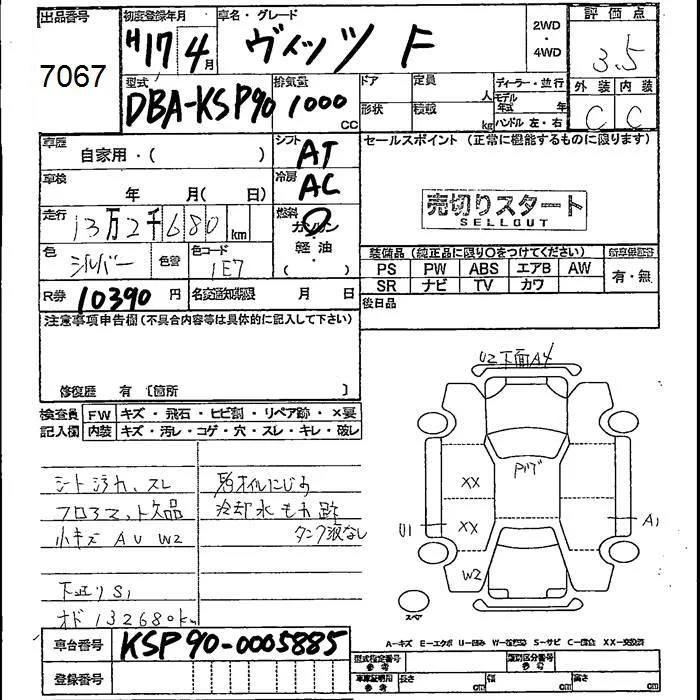 出品番号
7067
初度登録年月
H17年4月
車名・グレード
ヴィッツ F
2WD
・
4WD
評価点
3.5
外装 内装
C C
型式
DBA-KSP90
排気量
1000
cc
ドア 定員 人
形状 積載 kg
ディーラー・並行
モデル年式 年
ハンドル 左・右
車歴
自家用・( )
シフト
AT
セールスポイント (正常に機能するものに限ります)
車検
年 月( 日)
冷房
AC
売切りスタート
SELLOUT
走行
13万2千680km
燃料
ガソリン
軽油
・( )
色
シルバー
色替
色コード
1E7
装備品 (純正品に限り○をつけてください)
PS PW ABS エアB AW
SR ナビ TV カワ
有・無
R券 10390円
名変通知期限 月 日
後日品
注意事項申告欄(不具合内容等は具体的に記入して下さい)
修復歴 有 〔箇所 〕
検査員記入欄
FW キズ・飛石・ヒビ割・リペア跡・×要
内装 キズ・汚レ・コゲ・穴・スレ・キレ・破レ
シート汚れ、スレ
フロアマット欠品
小キズ AU W2
下廻りS1
オド132680km
冷却水もれ跡
タンク液なし
U2 下面A4
XX
XX
U1
A1
W2
スペア
A-キズ E-エクボ U-凹み W-波形跡 S-サビ C-腐食 XX-交換済
車台番号 KSP90-0005885
登録番号
型式指定番号
参考
類別区分番号
参考
車庫証明用
参考
長さ cm
幅 cm
高さ cm